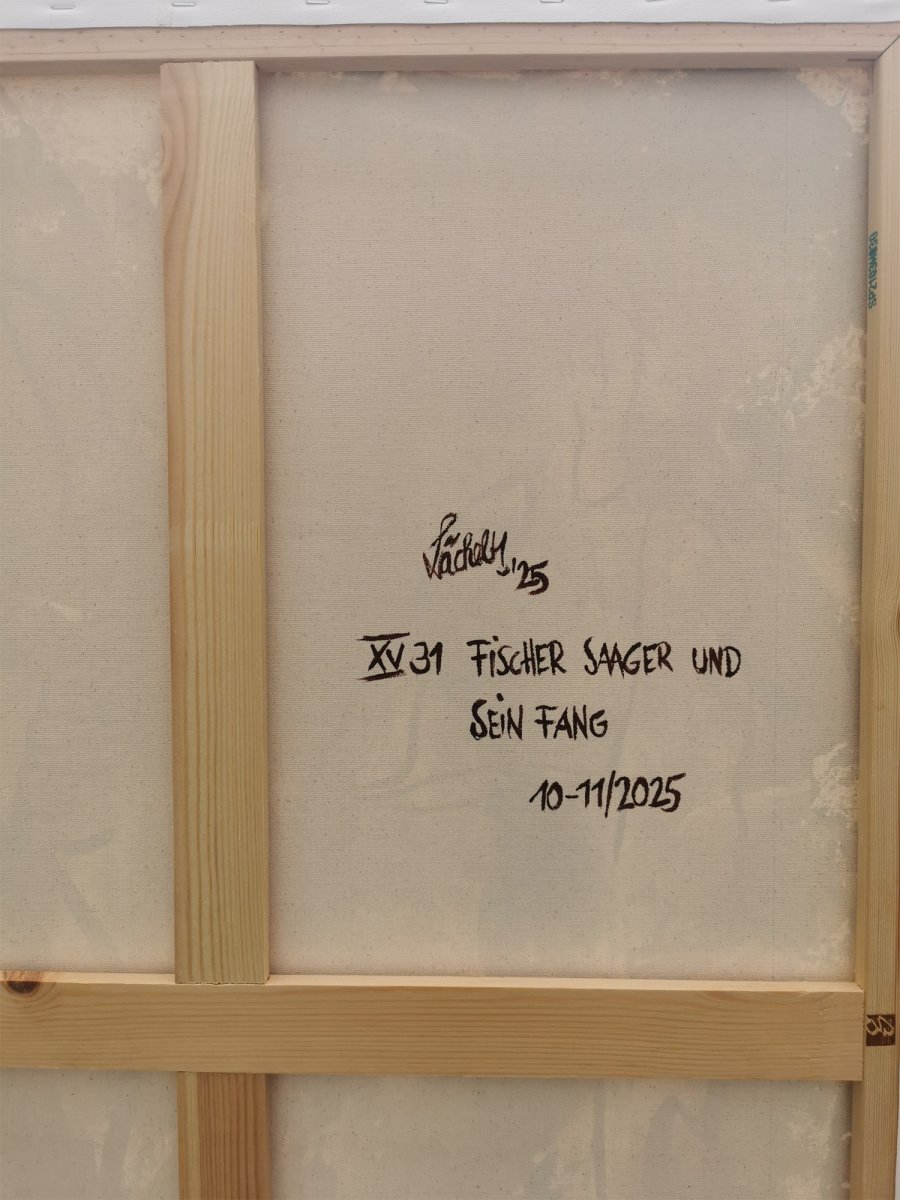 '25
XV 31 FISCHER SAAGER UND
SEIN FANG
10-11/2025
SP2103MM60